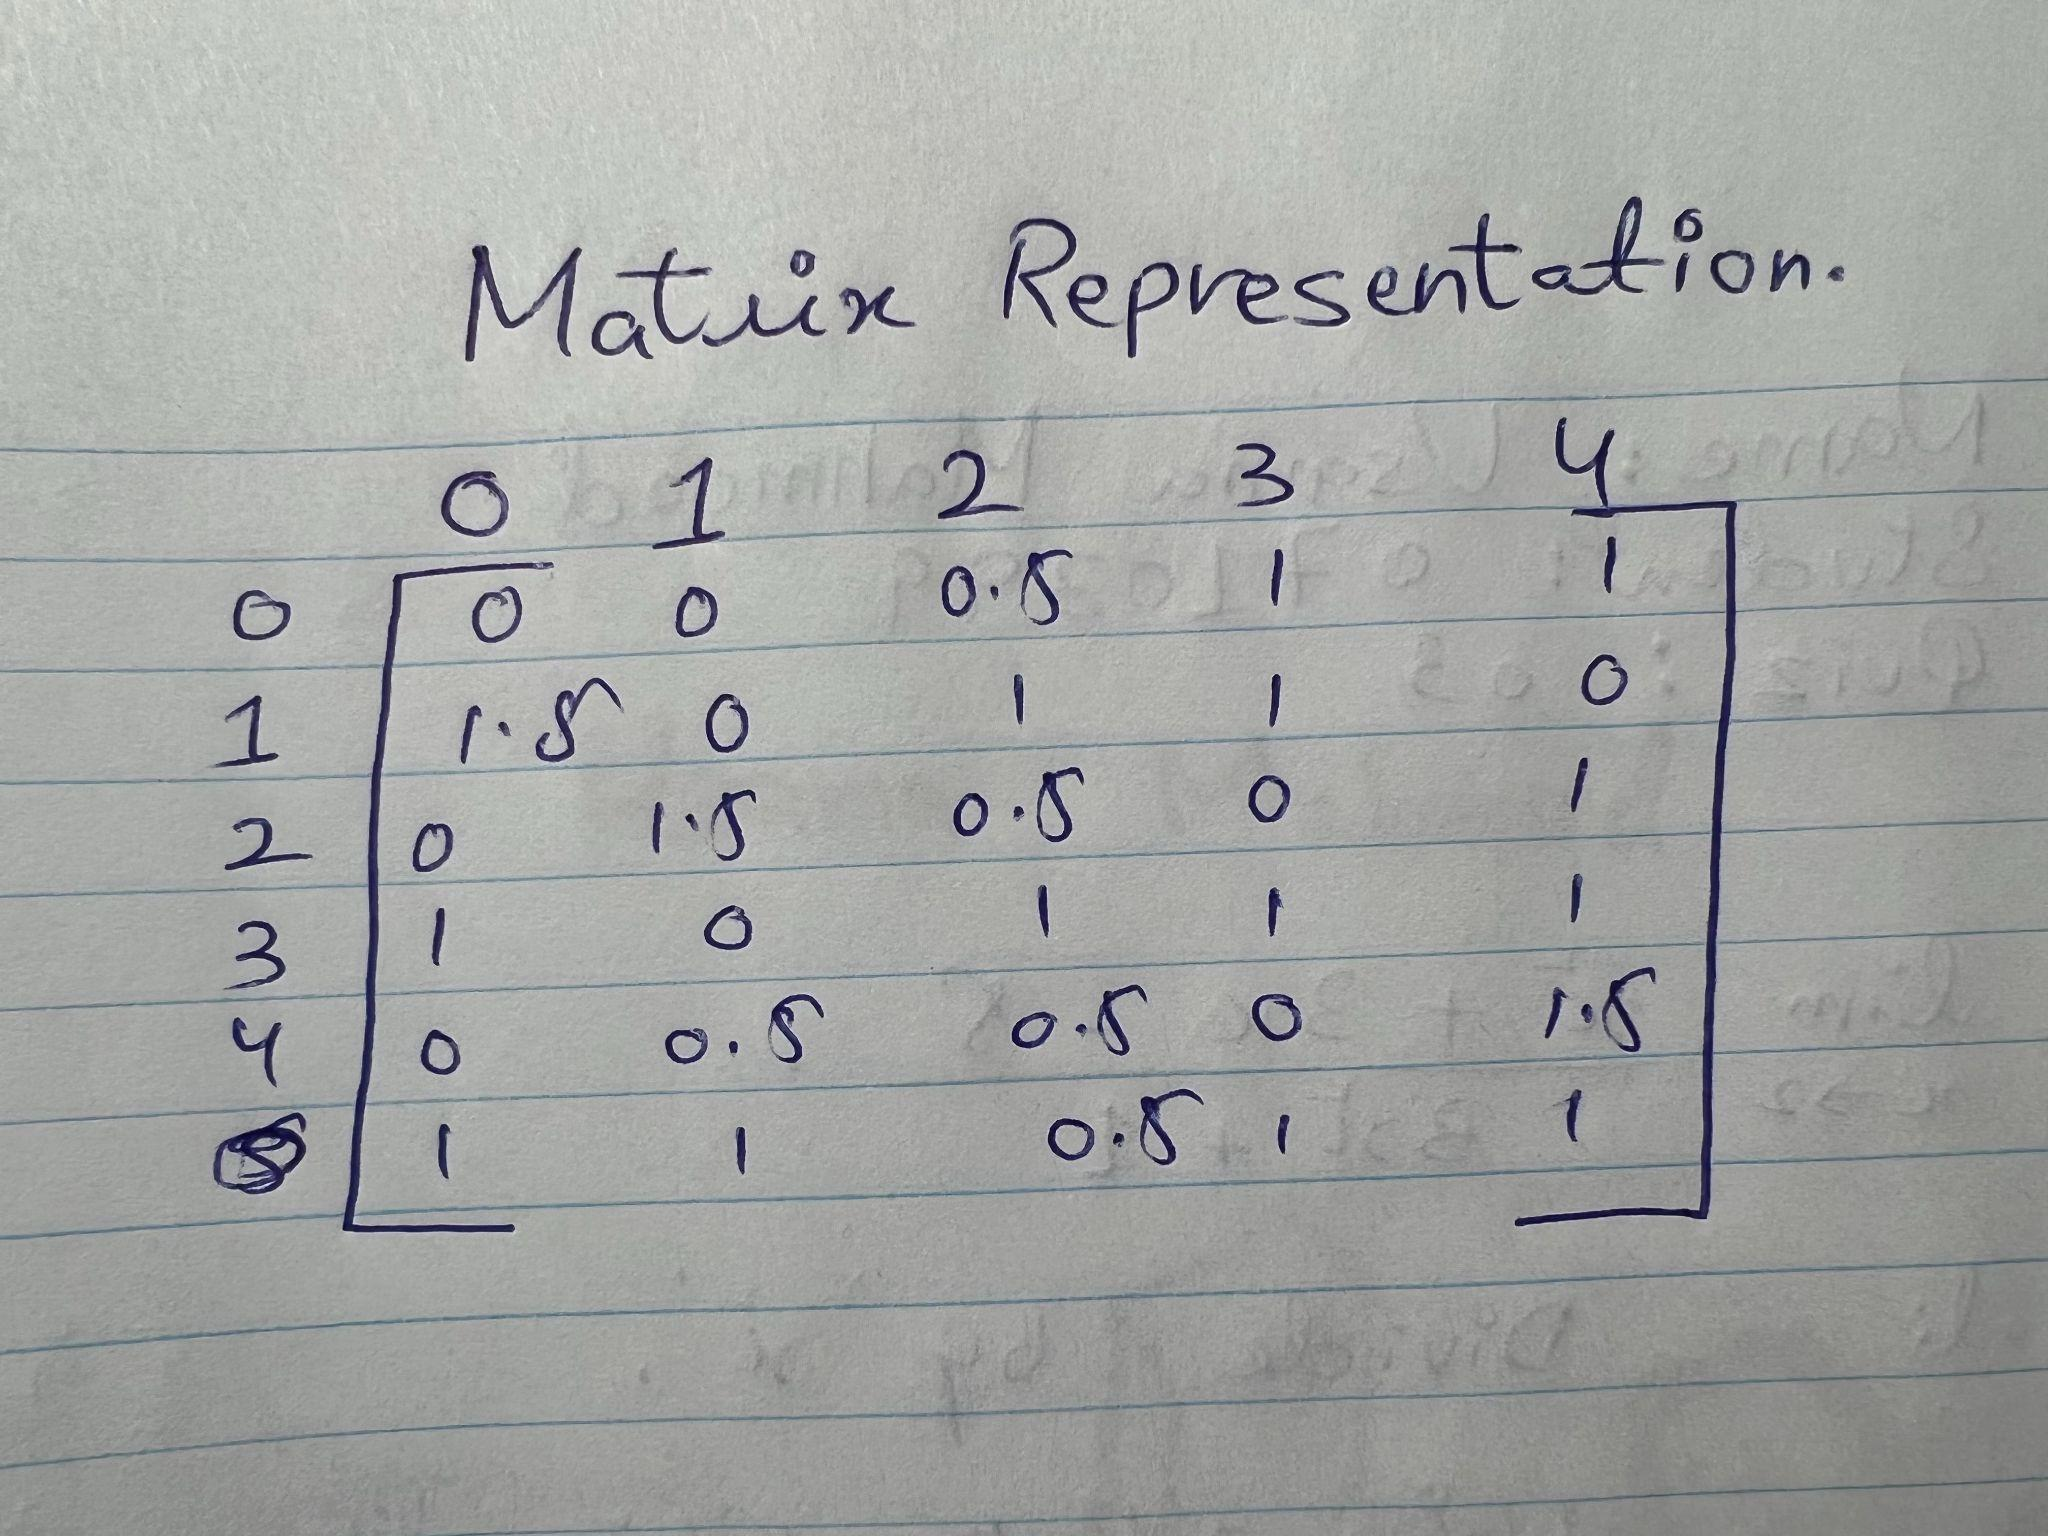 Matrix Representation.
0 1 2 3 4
0 0 0 0.5 1 1
1 1.5 0 1 1 0
2 0 1.5 0.5 0 1
3 1 0 1 1 1
4 0 0.5 0.5 0 1.5
5 1 1 0.5 1 1